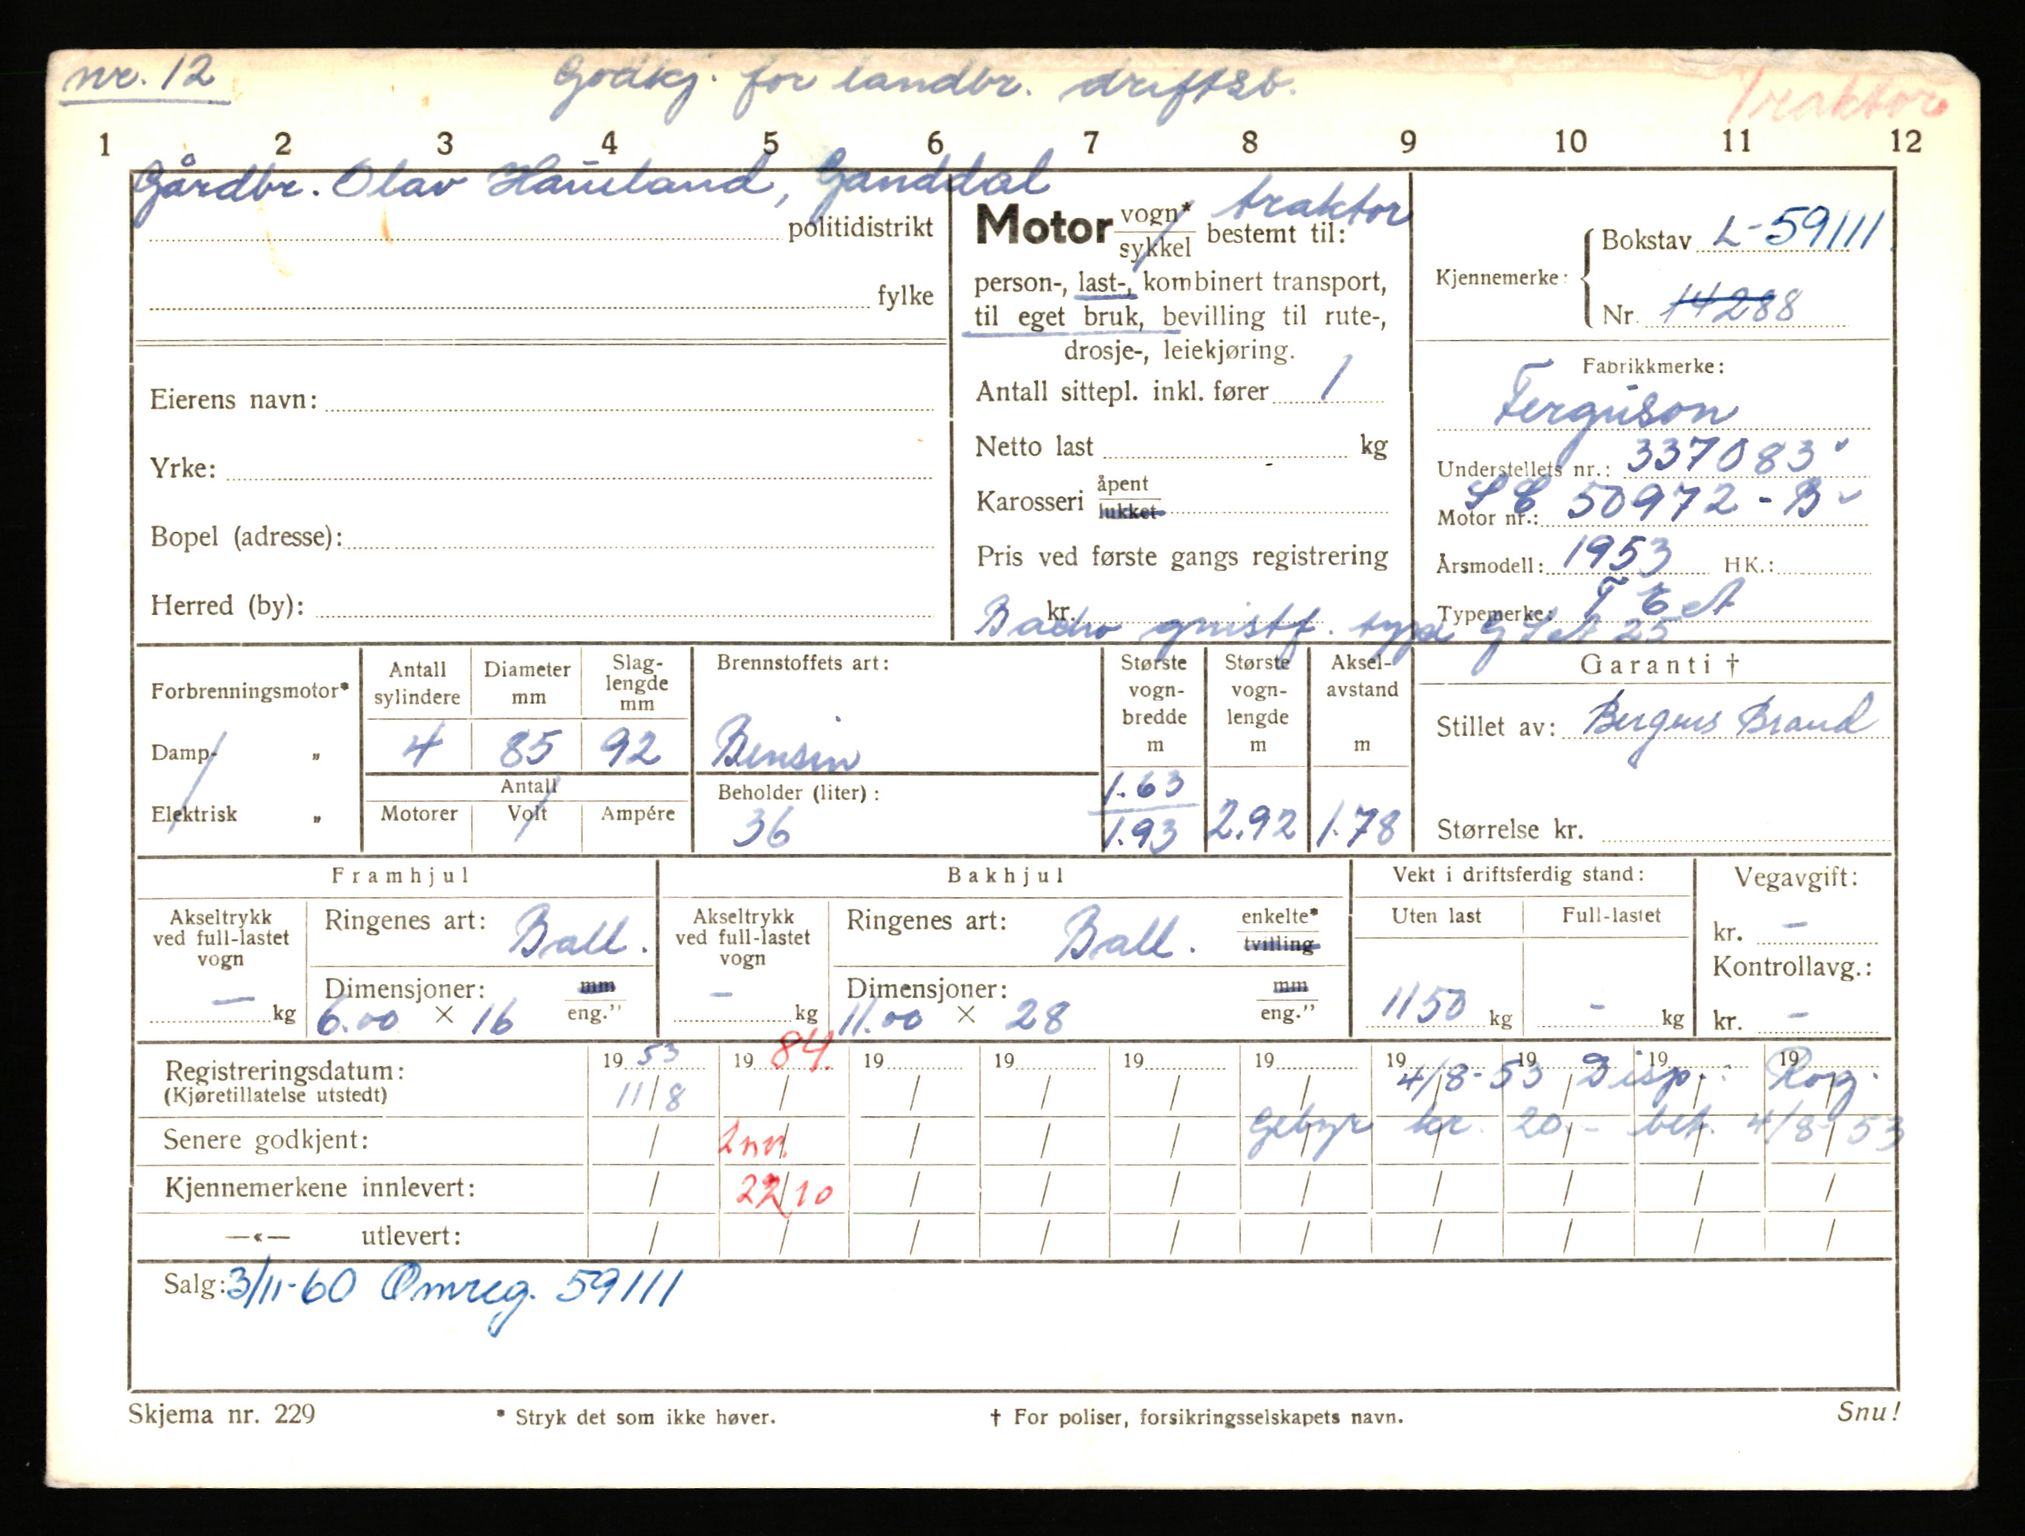 nr. 12
Godkj. for landbr. driftsb.
Traktor
1 2 3 4 5 6 7 8 9 10 11 12
Gårdbr. Olav Haueland, Ganddal
politidistrikt
fylke
Eierens navn:
Yrke:
Bopel (adresse):
Herred (by):
Motor vogn* sykkel bestemt til: traktor
person-, last-, kombinert transport,
til eget bruk, bevilling til rute-,
drosje-, leiekjøring.
Antall sittepl. inkl. fører 1
Netto last kg
Karosseri åpent lukket
Pris ved første gangs registrering
kr.
gnistf.
Kjennemerke: Bokstav L-59111
Nr. 14288
Fabrikkmerke:
Ferguson
Understellets nr.: 337083
Motor nr.: SE 50972 - B
Årsmodell: 1953 HK.:
Typemerke: TEA
Forbrenningsmotor*
Damp- „
Elektrisk „
Antall sylindere 4
Diameter mm 85
Slaglengde mm 92
Antall
Motorer Volt Ampére
Brennstoffets art:
Bensin
Beholder (liter):
36
Største vognbredde m 1.63 1.93
Største vognlengde m 2.92
Akselavstand m 1.78
Garanti †
Stillet av: Bergens Brand
Størrelse kr.
Framhjul
Akseltrykk ved full-lastet vogn – kg
Ringenes art: Ball.
Dimensjoner: mm eng."
6.00 × 16
Bakhjul
Akseltrykk ved full-lastet vogn – kg
Ringenes art: Ball. enkelte* tvilling
Dimensjoner: mm eng."
11.00 × 28
Vekt i driftsferdig stand:
Uten last Full-lastet
1150 kg – kg
Vegavgift:
kr. –
Kontrollavg.:
kr. –
Registreringsdatum: 19 53 19 84. 19 19 19 19 19 19 19 19
(Kjøretillatelse utstedt) 11/8
4/8-53 Disp.: Rog.
Gebyr kr. 20.- bet. 4/8-53
Senere godkjent:
Kjennemerkene innlevert: 22/10
—«— utlevert:
Salg: 3/11-60 Omreg. 59111
Skjema nr. 229
* Stryk det som ikke høver.
† For poliser, forsikringsselskapets navn.
Snu!